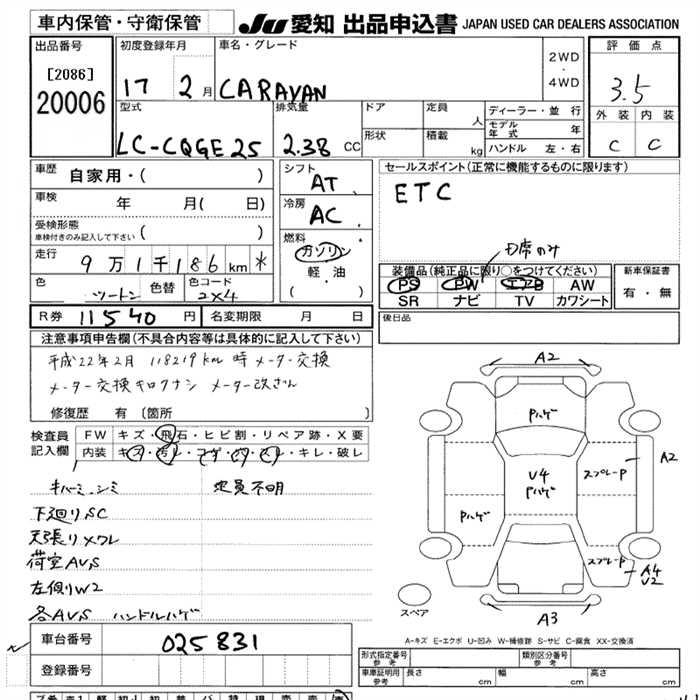 車内保管・守衛保管 JU 愛知 出品申込書 JAPAN USED CAR DEALERS ASSOCIATION
出品番号 初度登録年月 車名・グレード 2WD・4WD 評価点
[2086] 17 2月 CARAVAN 3.5
20006
型式 排気量 ドア 定員 人 ディーラー・並行 外装 内装
LC-CQGE25 2.38 CC 形状 積載 kg モデル年式 年 C C
ハンドル 左・右
車歴 自家用・( ) シフト AT セールスポイント(正常に機能するものに限ります)
車検 年 月( 日) 冷房 AC ETC
受検形態
車検付きのみ記入して下さい ( )
燃料 ガソリン
軽・油
( )
走行 9万1千186km *
色 ツートン 色替 色コード 2X4
D席のみ
装備品(純正品に限り○をつけてください) 新車保証書
PS PW エアB AW 有・無
SR ナビ TV カワシート
R券 11540円 名変期限 月 日 後日品
注意事項申告欄(不具合内容等は具体的に記入して下さい)
平成22年2月 118219km時 メーター交換
メーター交換キロクナシ メーター改ざん
修復歴 有 (箇所 )
検査員記入欄 FW キズ・飛石・ヒビ割・リペア跡・X要
内装 キズ・汚レ・コゲ・穴・スレ・キレ・破レ
定員不明
下廻りSC
天張りメクレ
荷室AVS
左側リW2
各AVS ハンドルハゲ
A2
Pハゲ
A2
U4
Pハゲ
スプレーP
Pハゲ
スプレーP
A4
U2
スペア
A3
A-キズ E-エクボ U-凹み W-補修跡 S-サビ C-腐食 XX-交換済
車台番号 025831
登録番号
形式指定番号 参考 類別区分番号 参考
車庫証明用 参考 長さ cm 幅 cm 高さ cm